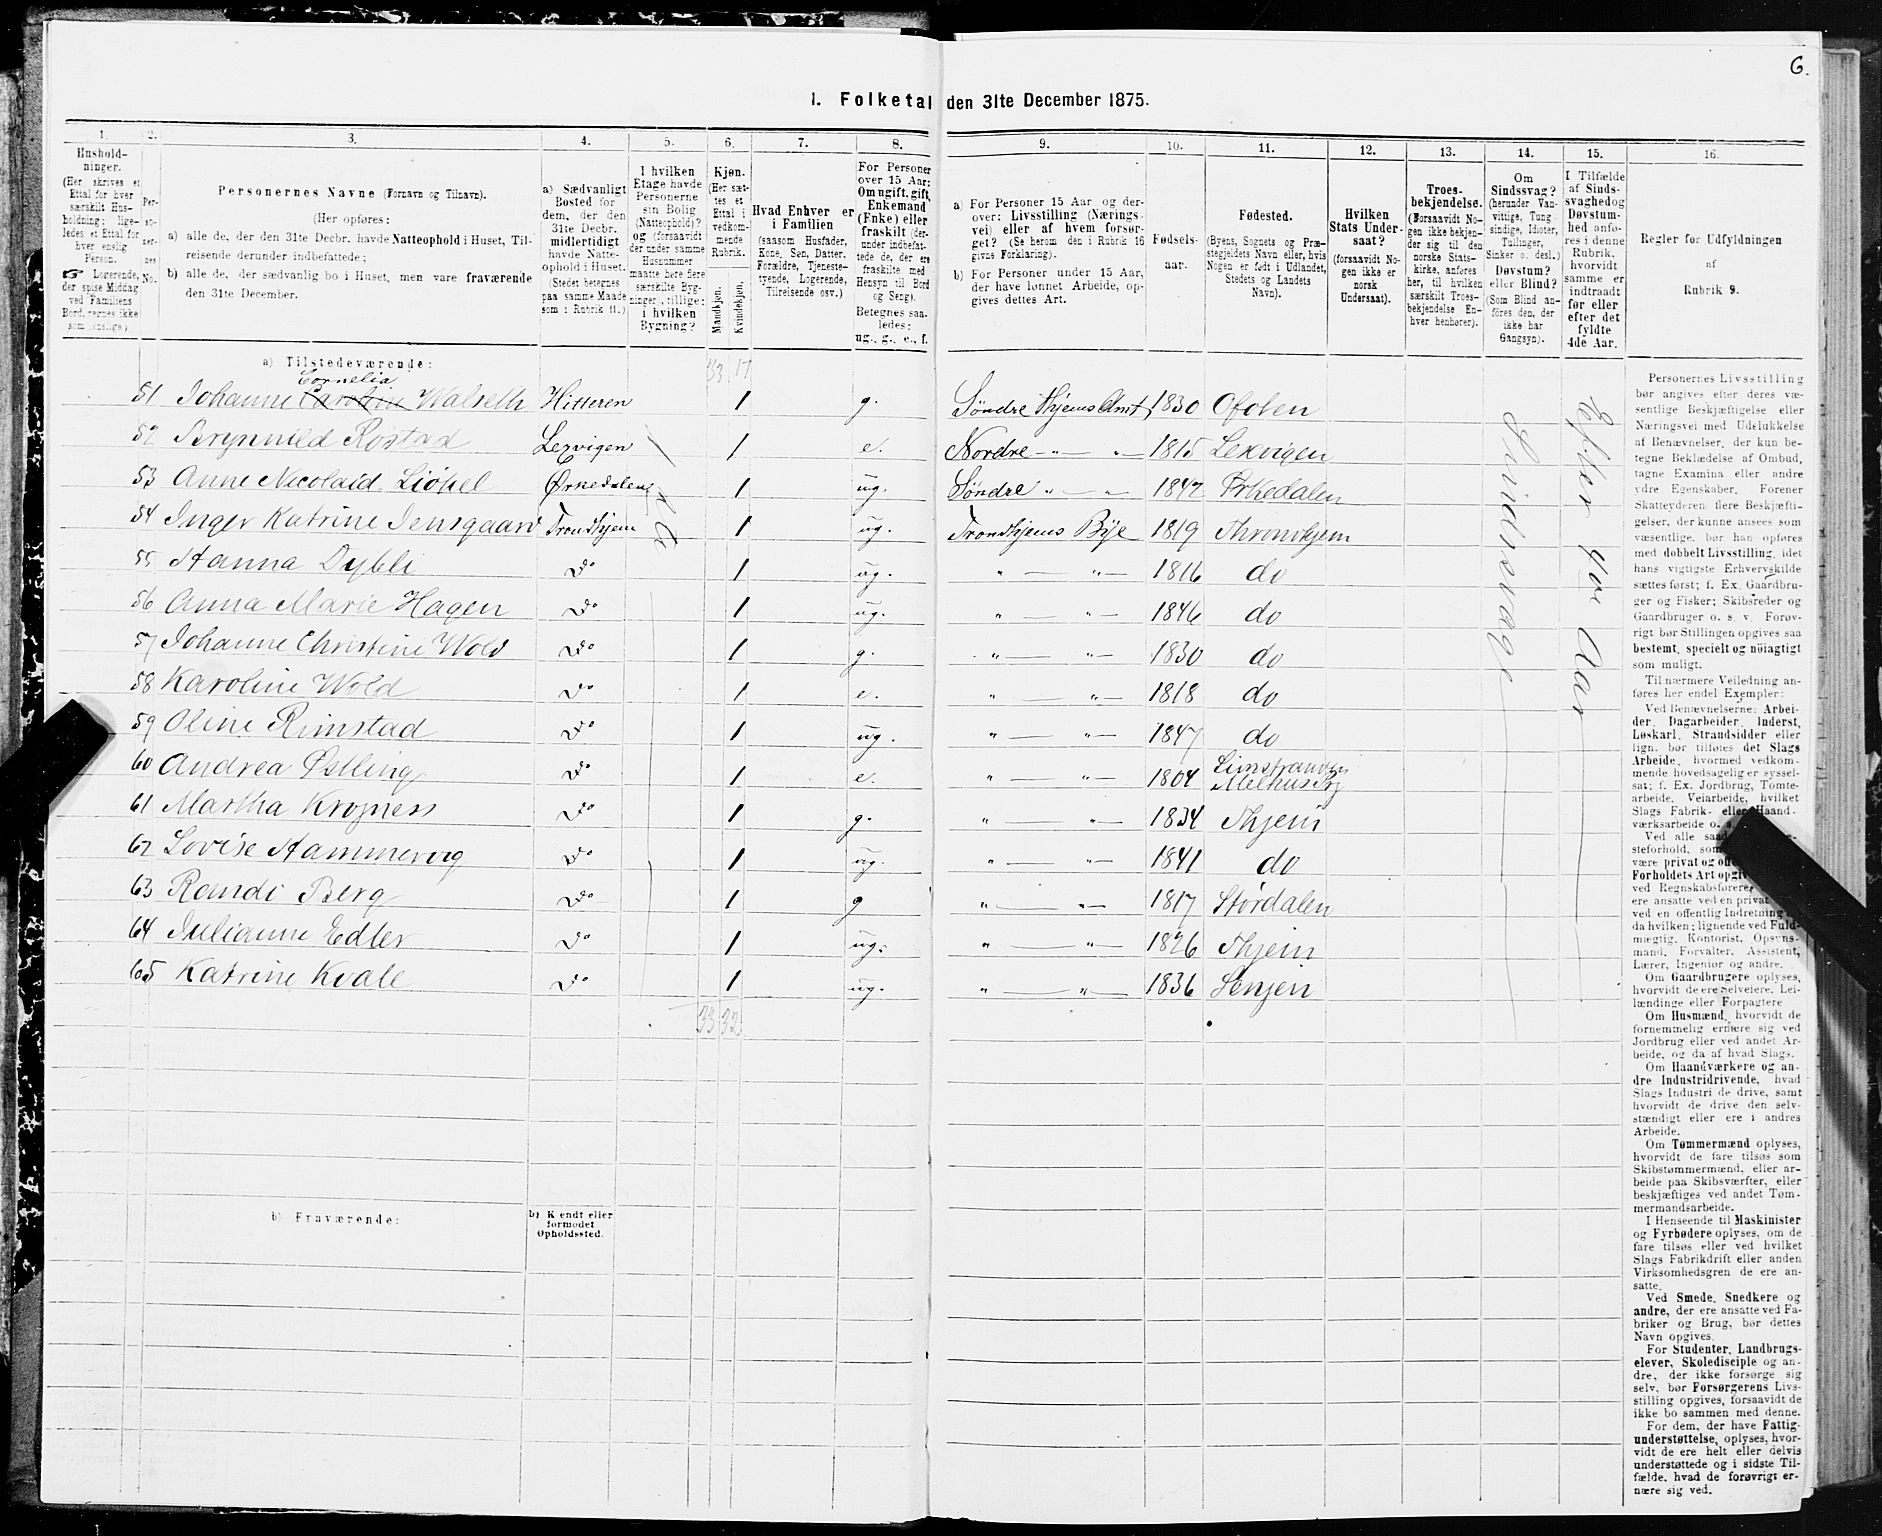 6.
1. Folketal den 31te December 1875.
1. 2. 3. 4. 5. 6. 7. 8. 9. 10. 11. 12. 13. 14. 15. 16.
Hushold-
ninger.
(Her skrives et
Ettal for hver
særskilt Hus-
holdning; lige-
ledes et Ettal for
hver enslig
Person.
☞ Logerende,
der spise Middag
ved Familiens
Bord, regnes ikke
som enslige)
Per-
so-
ner-
nes
No.
Personernes Navne (Fornavn og Tilnavn).
(Her opføres:
a) alle de, der den 31te Decbr. havde Natteophold i Huset, Til-
reisende derunder indbefattede;
b) alle de, der sædvanlig bo i Huset, men vare fraværende
den 31te December.
a) Sædvanligt
Bosted for
dem, der den
31te Decbr.
midlertidigt
havde Natte-
ophold i Huset.
(Stedet betegnes
paa samme Maade
som i Rubrik 11.)
I hvilken
Etage havde
Personerne
sin Bolig
(Natteophold)?
og (forsaavidt
der under samme
Husnummer
maatte høre flere
særskilte Byg-
ninger, tillige:
i hvilken
Bygning?
Kjøn.
(Her sæt-
tes et
Ettal i
vedkom-
mende
Rubrik.
Mandkjøn.
Kvindekjøn.
Hvad Enhver er
i Familien
(saasom Husfader,
Kone, Søn, Datter,
Forældre, Tjeneste-
tyende, Logerende,
Tilreisende osv.)
For Personer
over 15 Aar:
Om ugift, gift,
Enkemand
(Enke) eller
fraskilt (der-
under indbefat-
tede de, der ere
fraskilte med
Hensyn til Bord
og Seng).
Betegnes saa-
ledes:
ug., g., e., f.
a) For Personer 15 Aar og der-
over: Livsstilling (Nærings-
vei) eller af hvem forsør-
get? (Se herom den i Rubrik 16
givne Forklaring).
b) For Personer under 15 Aar,
der have lønnet Arbeide, op-
gives dettes Art.
Fødsels-
aar.
Fødested.
(Byens, Sognets og Præ-
stegjeldets Navn eller, hvis
Nogen er født i Udlandet,
Stedets og Landets
Navn).
Hvilken
Stats Under-
saat?
(forsaavidt No-
gen ikke er
norsk
Undersaat).
Troes-
bekjendelse.
(Forsaavidt No-
gen ikke bekjen-
der sig til den
norske Stats-
kirke, anføres
her, til hvilken
særskilt Troes-
bekjendelse En-
hver henhører).
Om
Sindssvag?
(herunder Van-
vittige, Tung-
sindige, Idioter,
Tullinger,
Sinker o. desl.)
Døvstum?
eller Blind?
(Som Blind an-
føres den, der
ikke har
Gangsyn).
I Tilfælde
af Sinds-
svaghed og
Døvstum-
hed anfø-
res i denne
Rubrik,
hvorvidt
samme er
indtraadt
før eller
efter det
fyldte
4de Aar.
Regler for Udfyldningen
af
Rubrik 9.
a) Tilstedeværende: 33 17
Cornelia
51 Johanne Caroline Walseth Hitteren 1 g. Søndre Thjems Amt 1830 Ofoten
52 Brynnild Rostad Lexvigen 1 e. Nordre " " 1815 Lexvigen
53 Anne Nicolaid. Liökel Ørkedalen 1 ug. Søndre " " 1842 Ørkedalen
54 Inger Katrine Jensgaard Trondhjem 1 ug. Trondhjems Bye 1819 Throndhjem
55 Hanna Dybli Do 1 ug. " " 1816 do
56 Anna Marie Hagen Do 1 ug. " " 1846 do
57 Johanne Christine Wold Do 1 g. " " 1830 do
58 Karoline Wold Do 1 e. " " 1818 do
59 Oline Rimstad Do 1 ug. " " 1847 do
60 Andrea Østling Do 1 e. " " 1804 Melhus
61 Martha Krogness Do 1 g. " " 1834 Thjem
62 Lovise Hammervig Do 1 ug. " " 1841 do
63 Randi Berg Do 1 g " " 1817 Størdalen
64 Julianne Edler Do 1 ug. " " 1826 Thjem
65 Katrine Kvale Do 1 ug. " " 1836 Senjen
33 32
Sindssvage
Efter 4de Aar
b) Fraværende:
b) Kjendt eller
formodet
Opholdssted.
Personernes Livsstilling
bør angives efter deres væ-
sentlige Beskjæftigelse eller
Næringsvei med Udelukkelse
af Benævnelser, der kun be-
tegne Beklædelse af Ombud,
tagne Examina eller andre
ydre Egenskaber. Forener
Skatteyderen flere Beskjæfti-
gelser, der kunne ansees som
væsentlige, bør han opføres
med dobbelt Livsstilling, idet
hans vigtigste Erhvervskilde
sættes først; f. Ex. Gaardbru-
ger og Fisker; Skibsreder og
Gaardbruger o. s. v. Forøv-
rigt bør Stillingen opgives saa
bestemt, specielt og nöiagtigt
som muligt.
Til nærmere Veiledning an-
føres her endel Exempler:
Ved Benævnelserne: Arbei-
der, Dagarbeider, Inderst,
Løskarl, Strandsidder eller
lign. bør tilføies det Slags
Arbeide, hvormed vedkom-
mende hovedsagelig er syssel-
sat; f. Ex. Jordbrug, Tomte-
arbeide, Veiarbeide, hvilket
Slags Fabrik- eller Haand-
værksarbeide o. s.
Ved alle
steforhold, som
være privat og
Forholdets Art
ved Regnskabsførere,
ere ansatte ved en privat
ved en offentlig Indretning
da hvilken; lignende ved Fuld-
mægtig, Kontorist, Opsyns-
mand, Forvalter, Assistent,
Lærer, Ingeniør og andre.
Om Gaardbrugere oplyses,
hvorvidt de ere Selveiere, Lei-
lændinge eller Forpagtere
Om Husmænd, hvorvidt de
fornemmelig ernære sig ved
Jordbrug eller ved andet Ar-
beide, og da af hvad Slags.
Om Haandværkere og an-
dre Industridrivende, hvad
Slags Industri de drive, samt
hvorvidt de drive den selv-
stændigt eller ere i andres
Arbeide.
Om Tømmermænd oplyses,
hvorvidt de fare tilsøs som
Skibstømmermænd, eller ar-
beide paa Skibsværfter, eller
beskjæftiges ved andet Tøm-
mermandsarbeide.
I Henseende til Maskinister
og Fyrbødere oplyses, om de
fare tilsøs eller ved hvilket
Slags Fabrikdrift eller anden
Virksomhedsgren de ere an-
satte.
Ved Smede, Snedkere og
andre, der ere ansatte ved Fa-
briker og Brug, bør dettes
Navn opgives.
For Studenter, Landbrugs-
elever, Skoledisciple og an-
dre, der ikke forsørge sig
selv, bør Forsørgerens Livs-
stilling opgives, forsaavidt de
ikke bo sammen med denne.
For dem, der have Fattig-
understøttelse, oplyses, hvor-
vidt de ere helt eller delvis
understøttede og i sidste Til-
fælde, hvad de forøvrigt er-
nære sig ved.